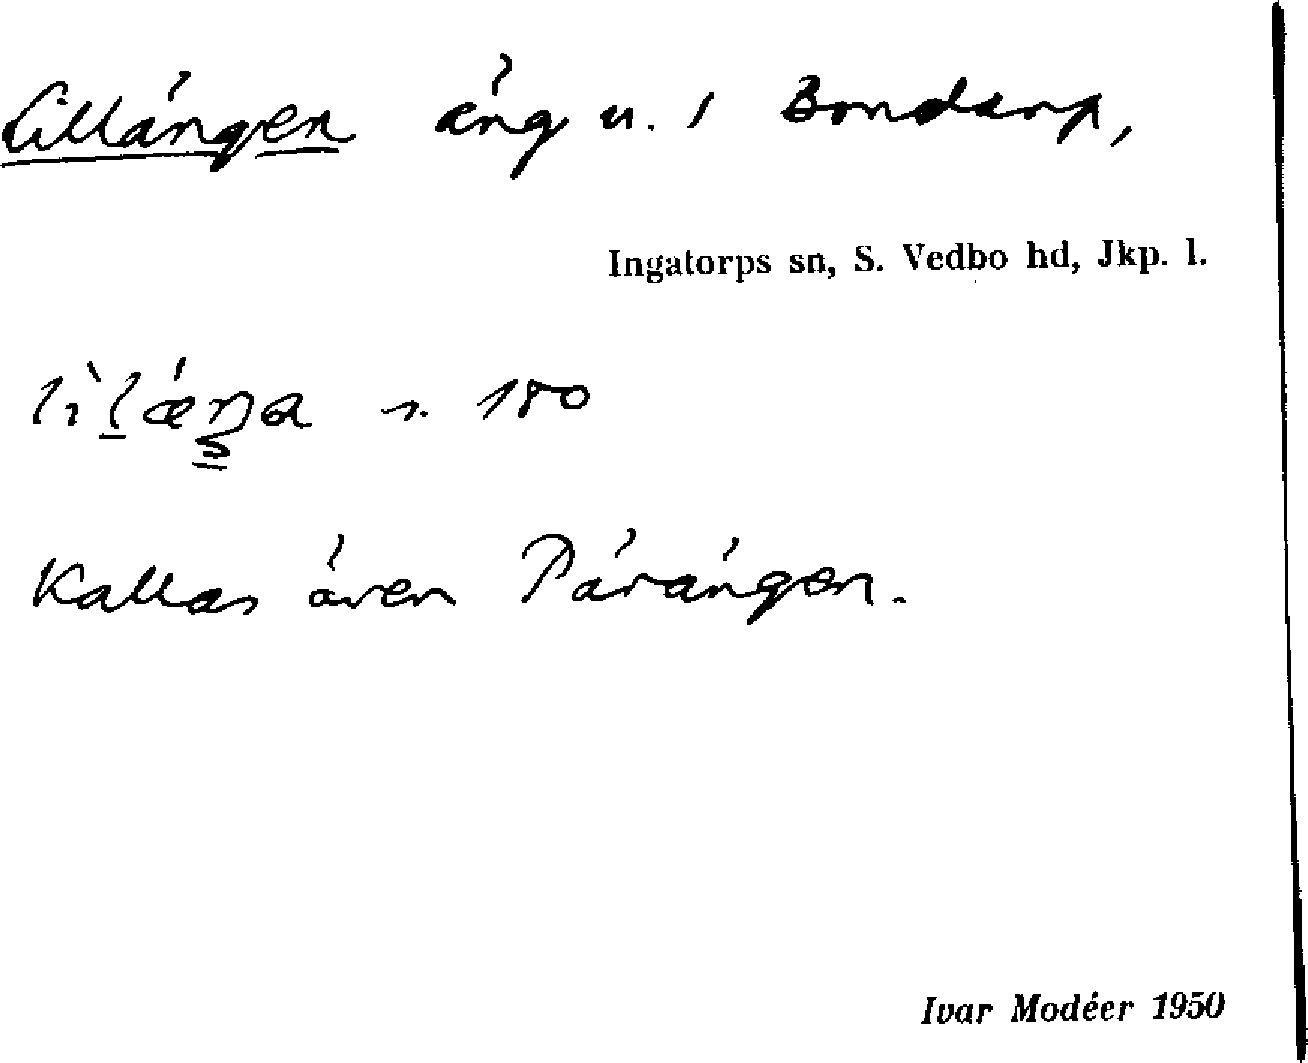 Lillängen äng u. 1 Bondarp,
Ingatorps sn, S. Vedbo hd, Jkp. l.
n. 180
Kallas även Pärängen.
Ivar Modéer 1950